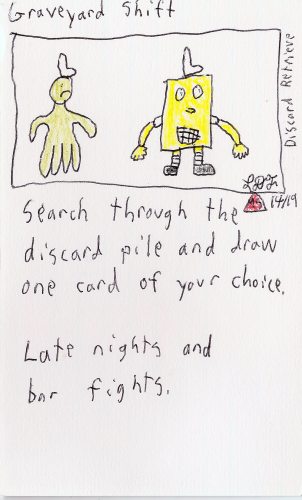 Graveyard Shift
Discard Retrieve
MS 14/19
Search through the
discard pile and draw
one card of your choice.
Late nights and
bar fights.